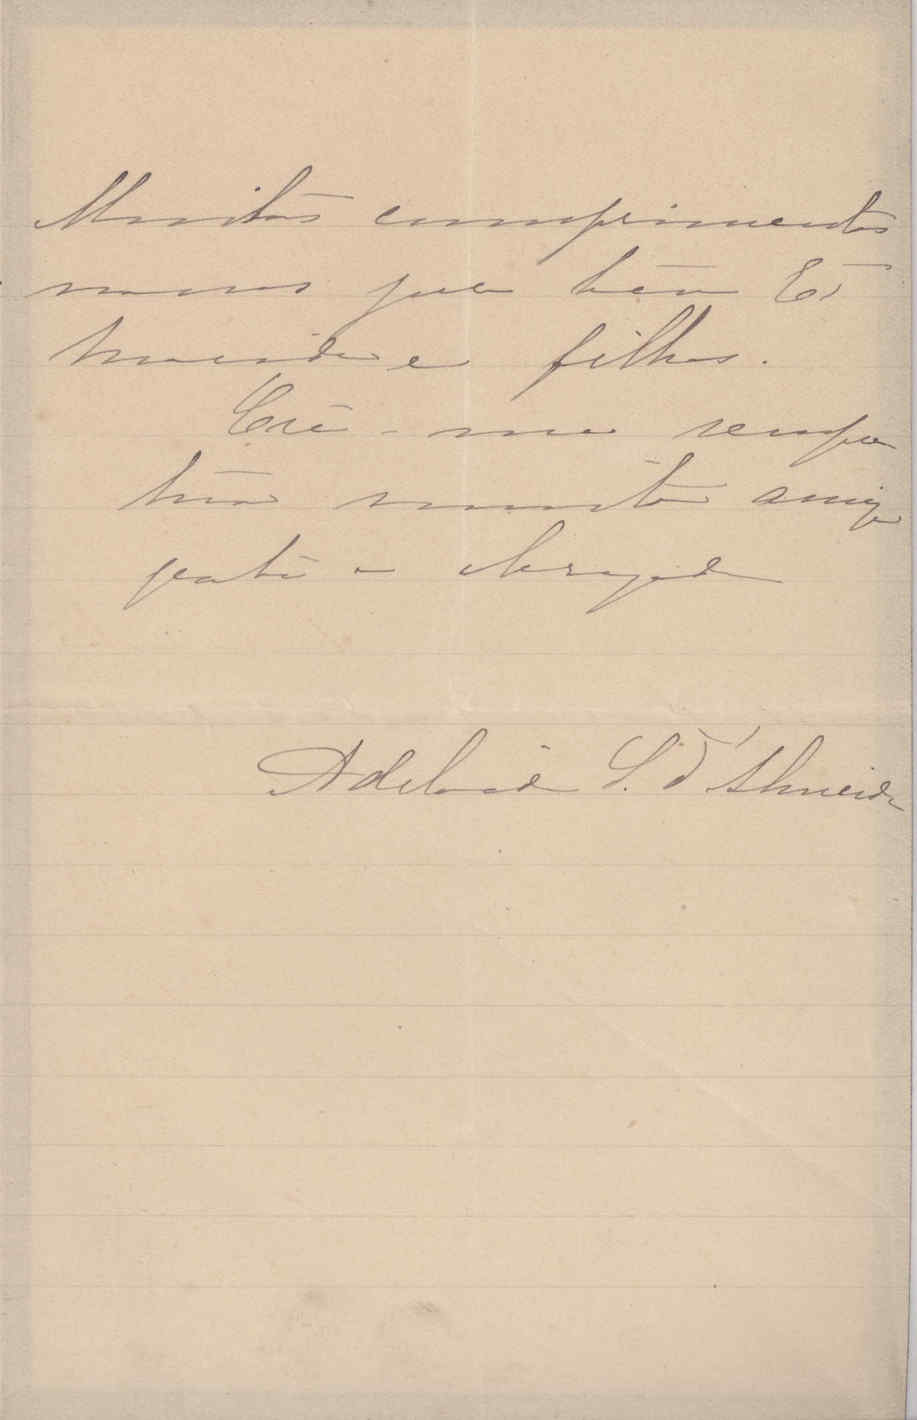 Muitos cumprimentos
nossos para seu Ex.
marido e filhos.
Crê-me sempre
tua muito amiga
grata e obrigada
Adelaide S. d'Almeida